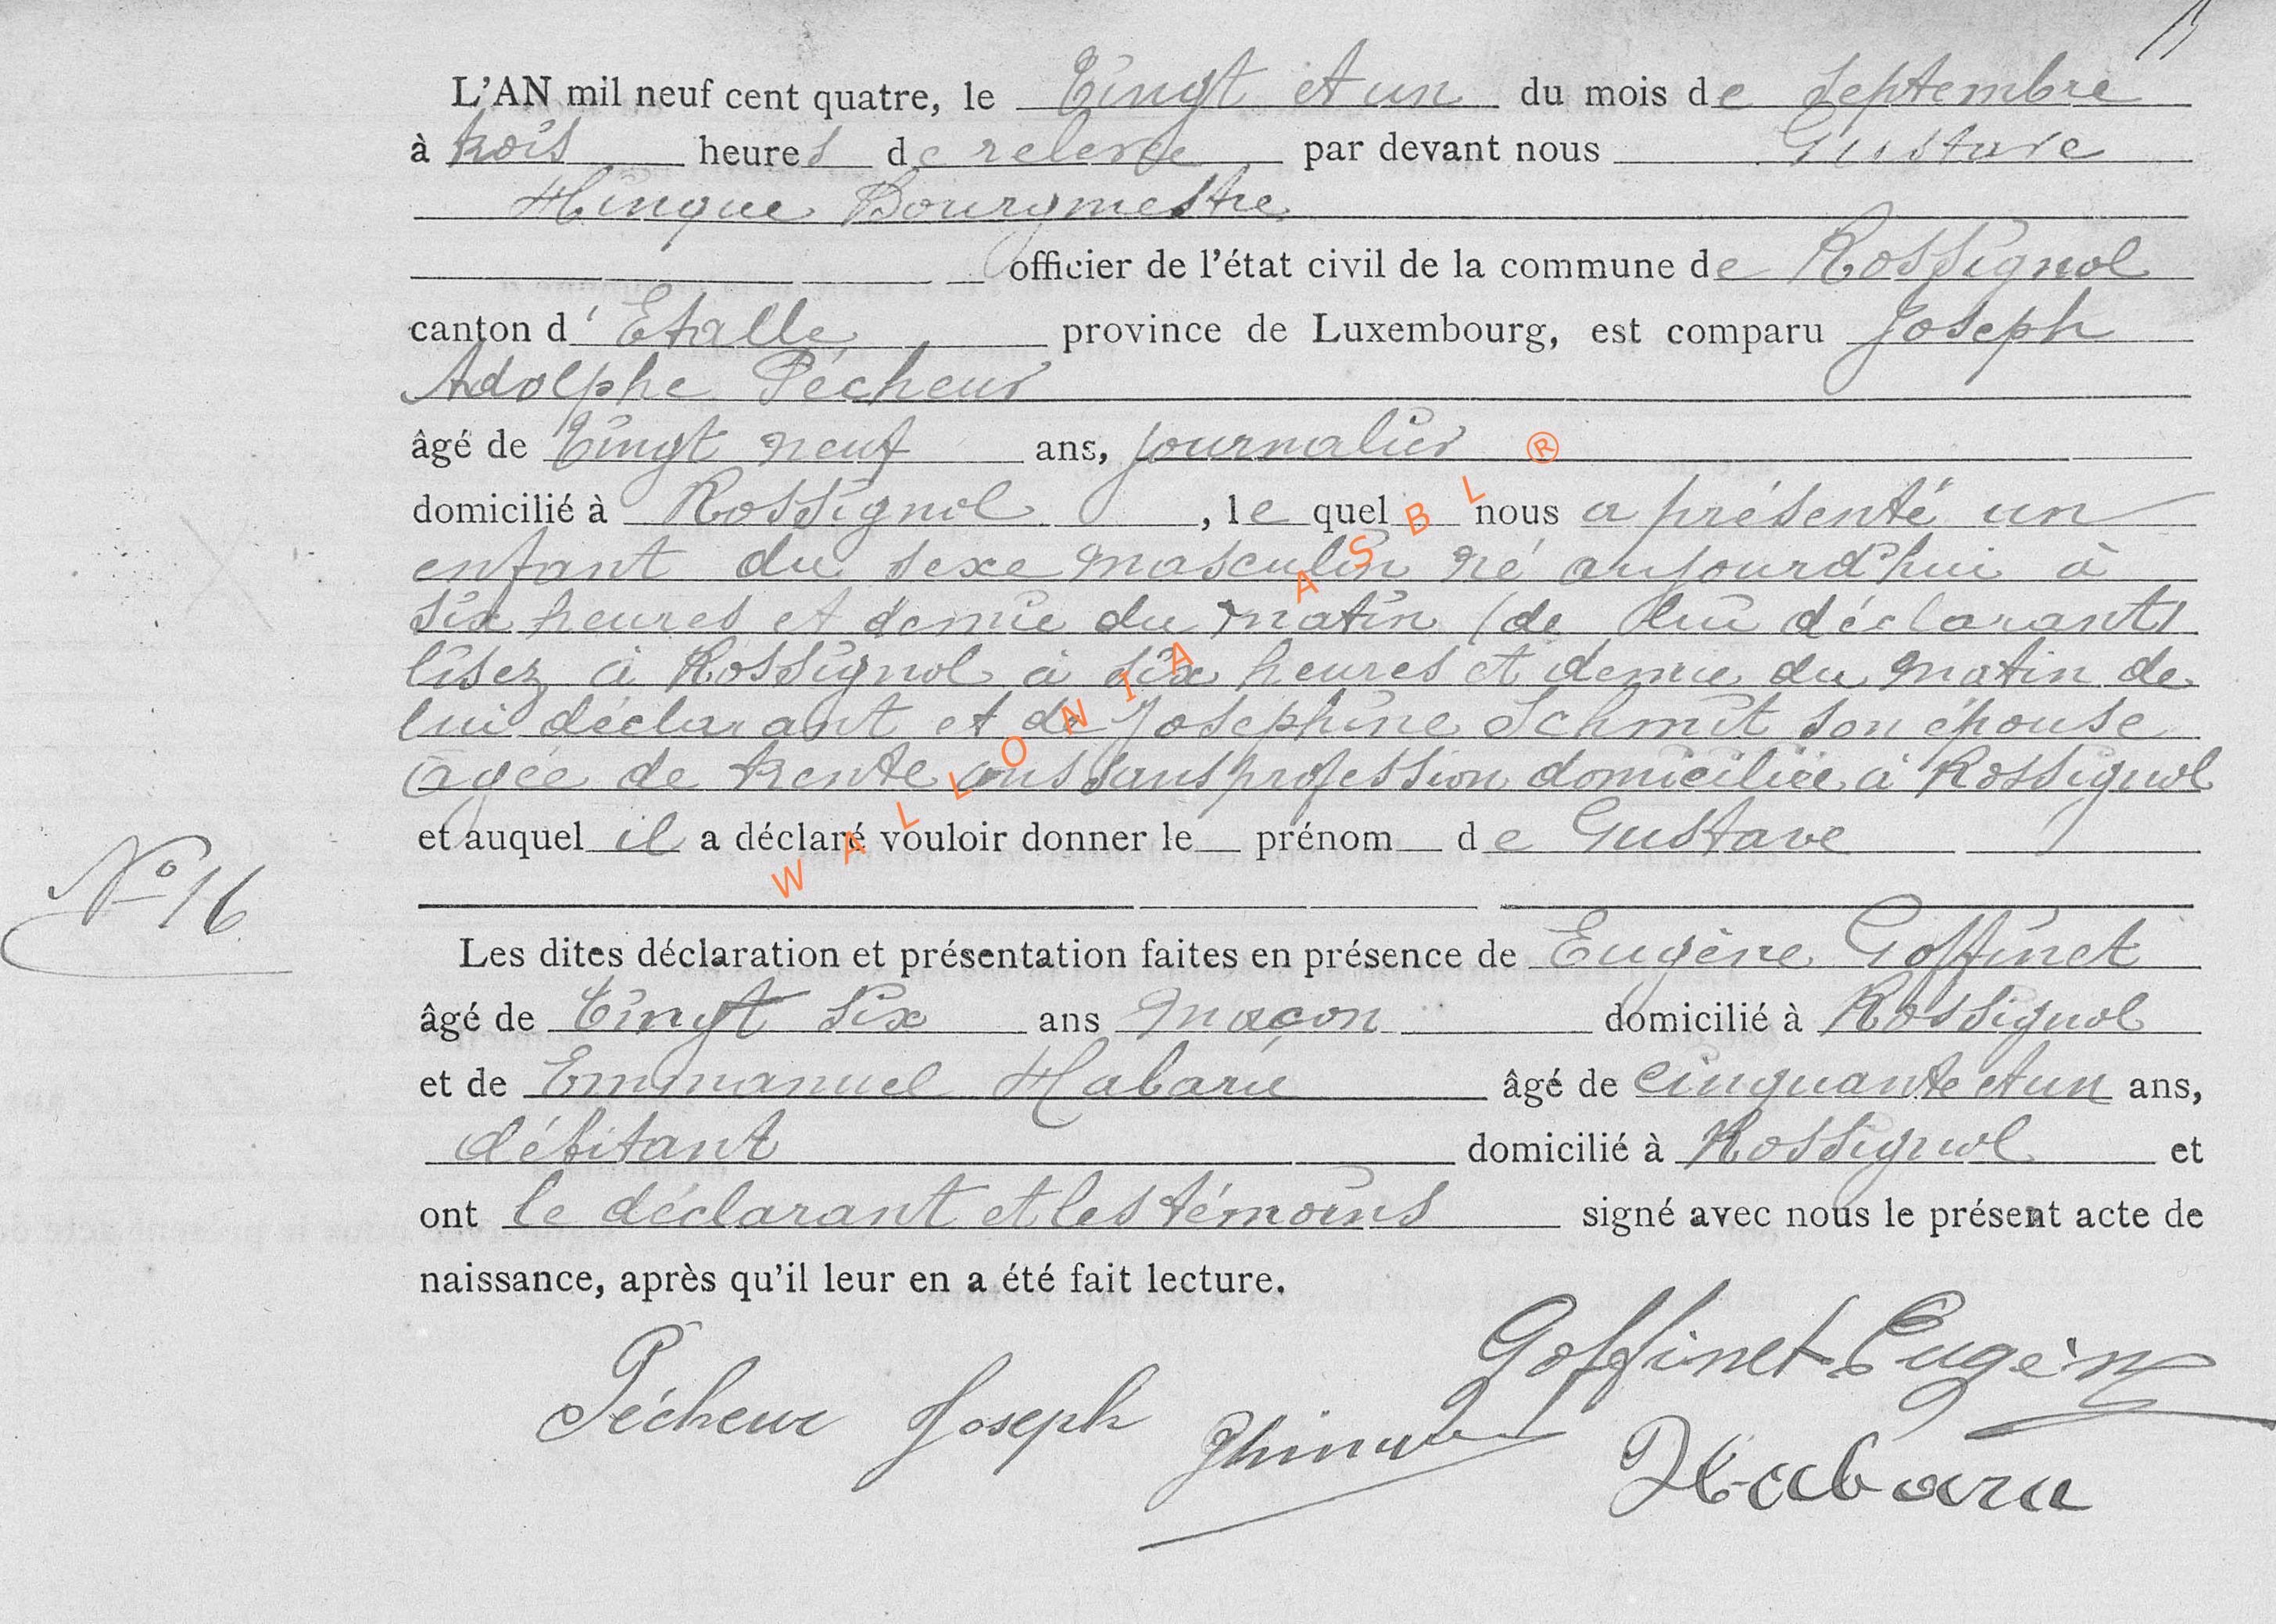 L'AN mil neuf cent quatre, le Vingt et un du mois de Septembre
à trois heures de relevée par devant nous Gustave
Hinque Bourgmestre
officier de l'état civil de la commune de Rossignol
canton d' Etalle province de Luxembourg, est comparu Joseph
Adolphe Pécheur
âgé de Vingt neuf ans, journalier
domicilié à Rossignol, le quel nous a présenté un
enfant du sexe masculin né aujourd'hui à
six heures et demie du matin (de lui déclarant)
lisez à Rossignol à six heures et demie du matin de
lui déclarant et de Joséphine Schmit son épouse
âgée de trente ans sans profession domiciliée à Rossignol
et auquel il a déclaré vouloir donner le prénom de Gustave
No 16
Les dites déclaration et présentation faites en présence de Eugène Goffinet
âgé de Vingt six ans maçon domicilié à Rossignol
et de Emmanuel Habaru âgé de cinquante et un ans,
débitant domicilié à Rossignol et
ont le déclarant et les témoins signé avec nous le présent acte de
naissance, après qu'il leur en a été fait lecture.
Goffinet Eugène
Pécheur Joseph
Habaru
WALLONIA ASBL ®